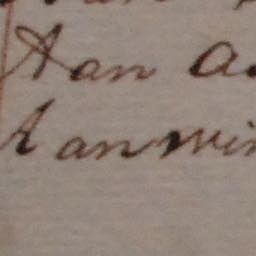 Aan a
Aanwi